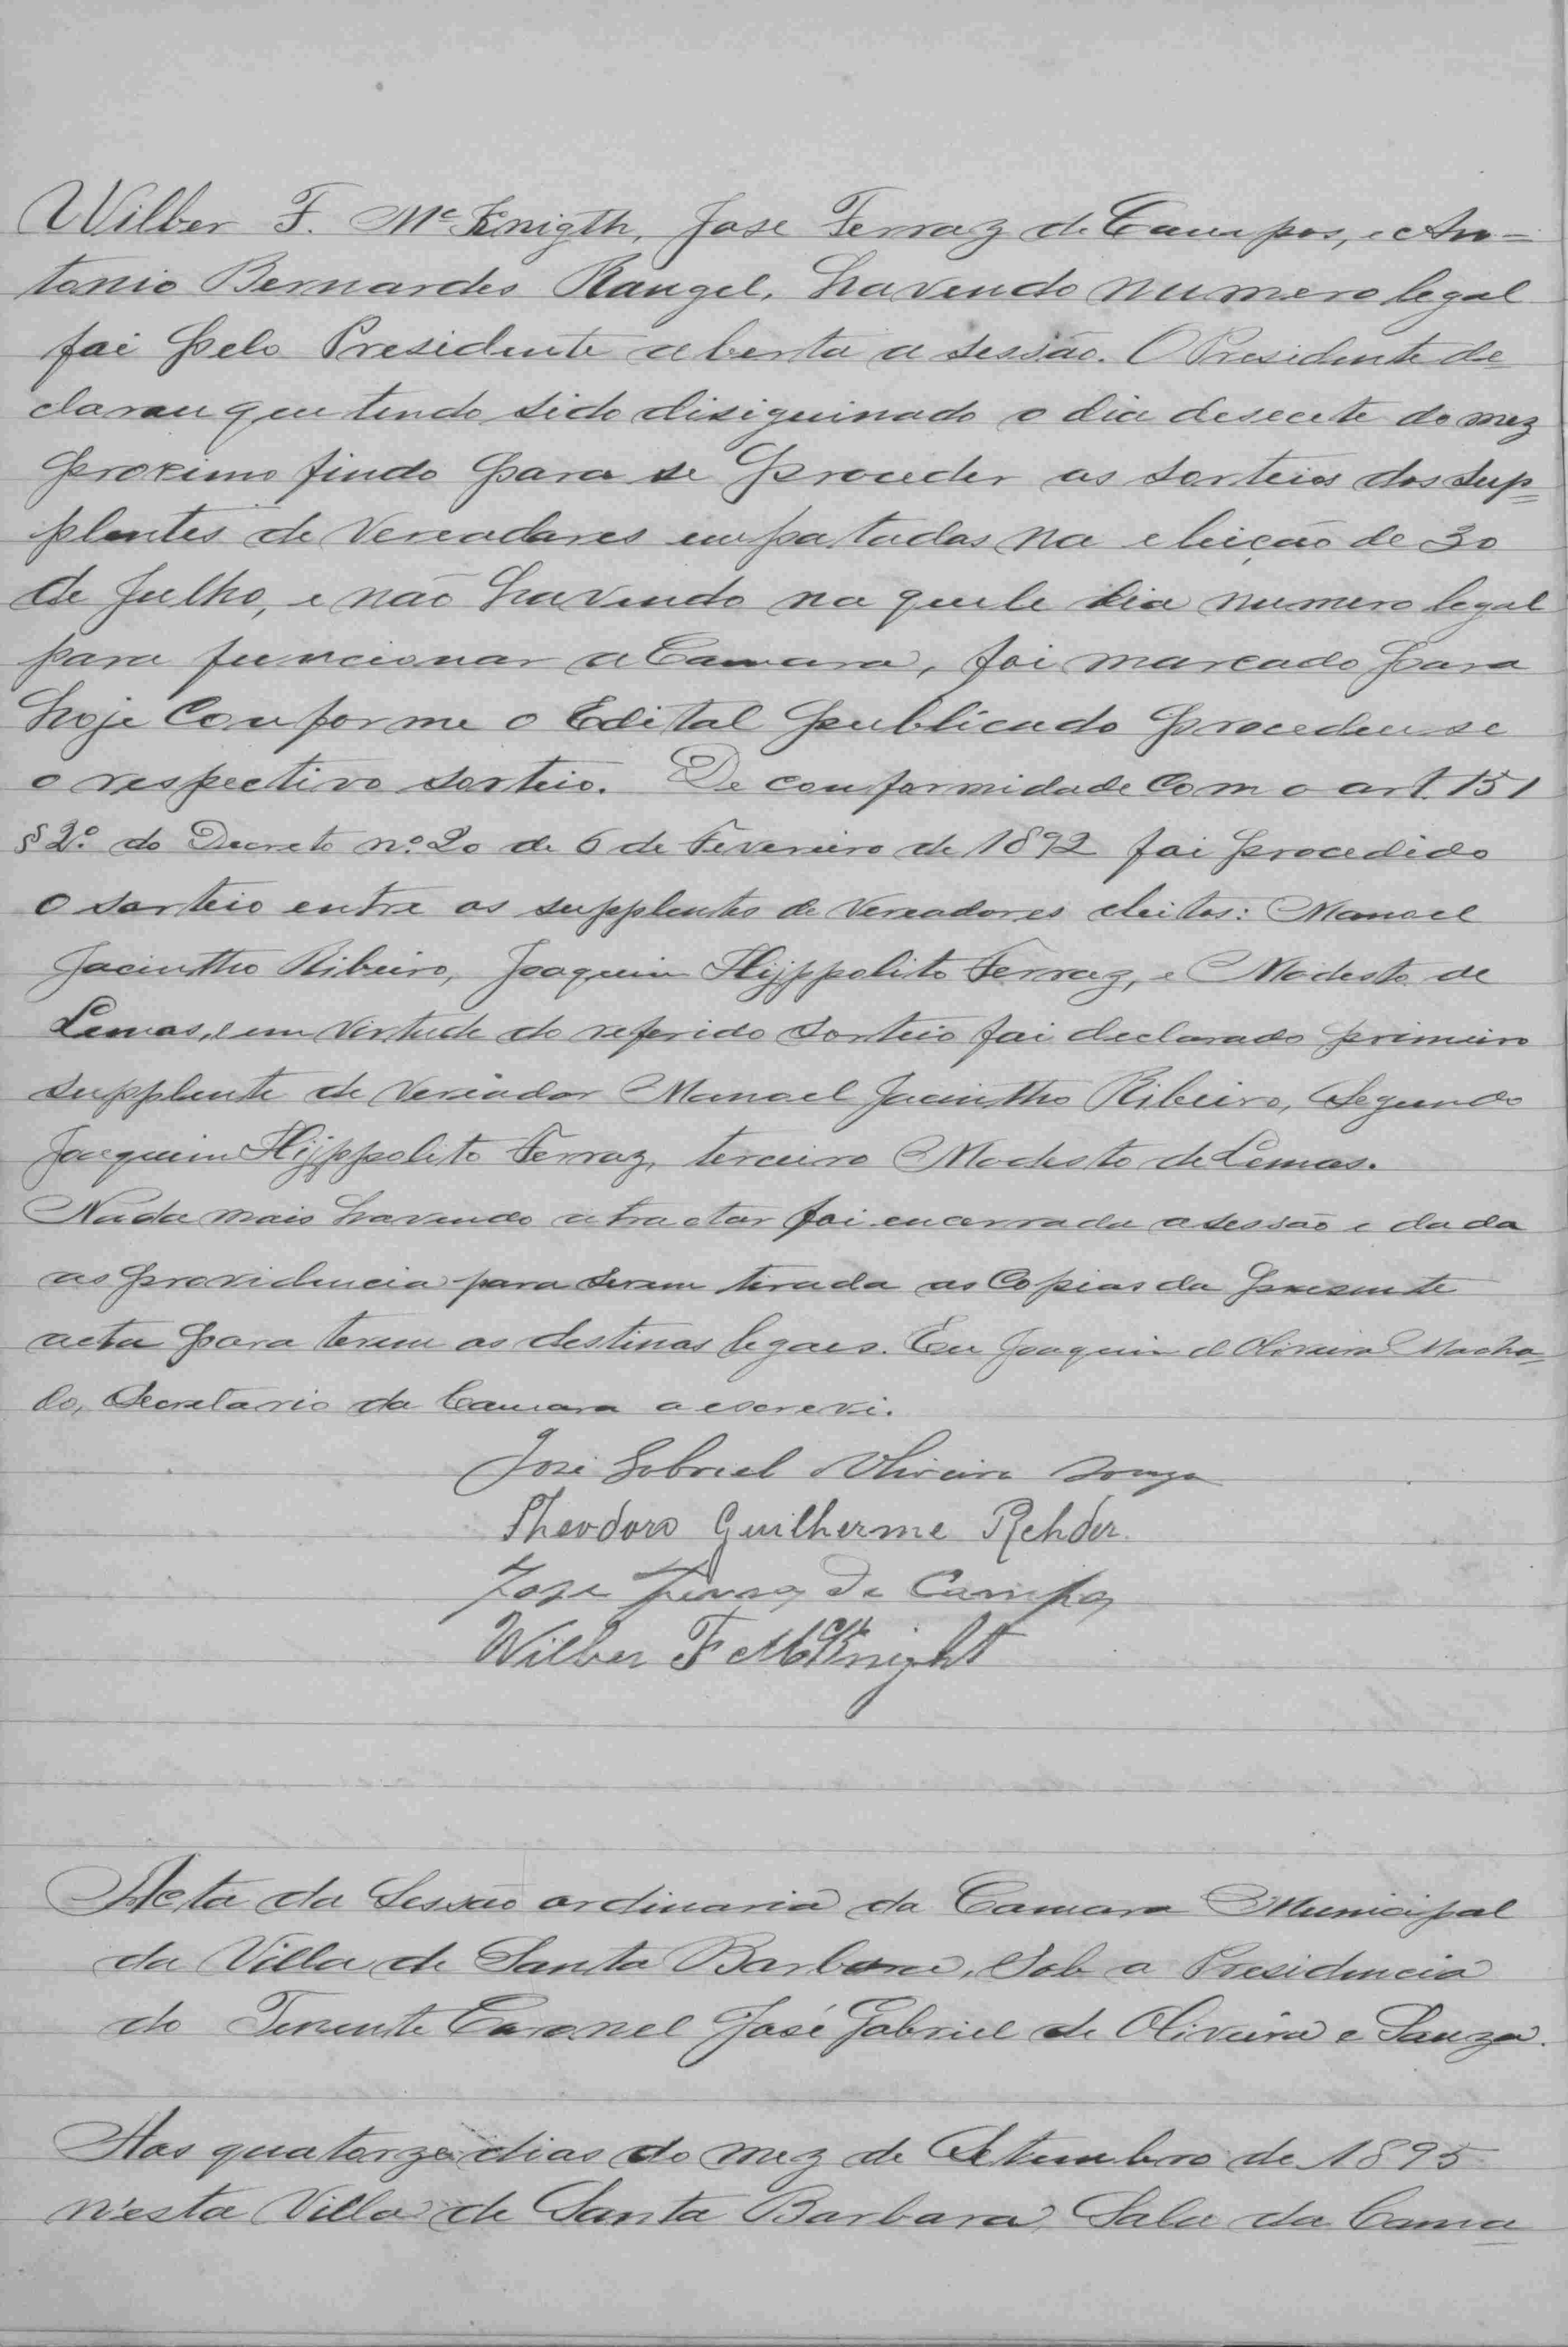 Wilber F. Mc Knigth, Jose Ferraz de Campos, e An=
tonio Bernardes Rangel, havendo numero legal
foi pelo Presidente aberta a sessão. O Presidente de
clarou que tendo sido disiguinado o dia desecete do mez
proximo findo para se proceder os sorteios dos sup=
plentes de Vereadores empatados na eleição de 30
de Julho, e não havendo na quele dia numero legal
para funcionar a Camara, foi marcado para
hoje Conforme o Edital publicado procedeu-se
o respectivo sorteio. De conformidade Com o art. 151
§ 2º. do Decreto nº. 20 de 6 de Fevereiro de 1892 foi procedido
o sorteio entre os supplentes de Vereadores eleitos: Manoel
Jacintho Ribeiro, Joaquim Hyppolito Ferraz, e Modesto de
Lemos, e em virtude do referido sorteio foi declarado primeiro
supplente de Vereador Manoel Jacintho Ribeiro, Segundo
Joaquim Hyppolito Ferraz, terceiro Modesto de Lemos.
Nada mais havendo a tractar foi encerrada a sessão e dada
as providencia para serem tirada as Copias da presente
acta para terem os destinos legaes. Eu Joaquim d' Oliveira Macha=
do, Secretario da Camara a escrevi.
José Gabriel Oliveira Souza
Theodoro Guilherme Rehder.
Jose Ferraz de Campos
Wilber F McKnight
Acta da Sessão ordinaria da Camara Municipal
da Villa de Santa Barbara, Sob a Presidencia
do Tenente Coronel José Gabriel de Oliveira e Souza.
Aos quatorze dias do mez de Setembro de 1895
n'esta Villa de Santa Barbara, Sala da Cama